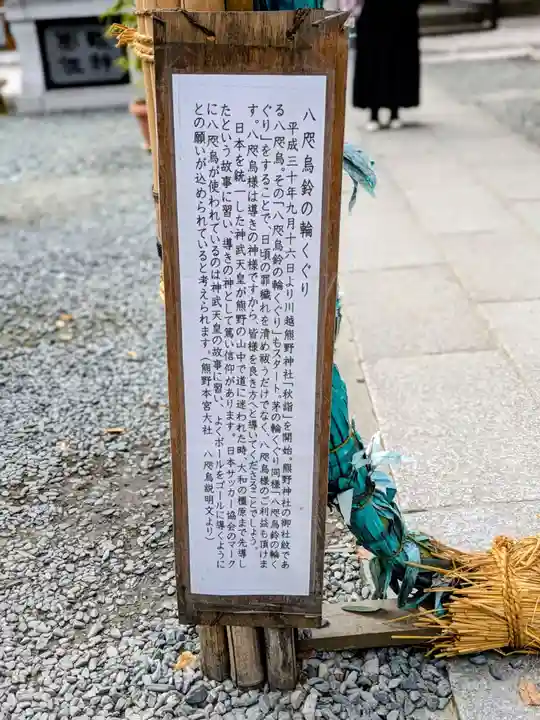 八咫烏鈴の輪くぐり
平成三十年九月十六日より川越熊野神社「秋詣」を開始。熊野神社の御社紋であ
る八咫烏。その「八咫烏鈴の輪くぐり」もスタート。茅の輪くぐり同様「八咫烏鈴の輪く
ぐり」をすることで、日頃の罪穢れを清め祓うだけでなく、八咫烏様のご利益も頂けま
す。八咫烏様は導きの神様ですから、皆様を良き方へと導いてくださることでしょう。
日本を統一した神武天皇が熊野の山中で道に迷われた時、大和の橿原まで先導し
たという故事に習い、導きの神として篤い信仰があります。日本サッカー協会のマーク
に八咫烏が使われているのは神武天皇の故事に習い、よくボールをゴールに導くように
との願いが込められていると考えられます。（熊野本宮大社　八咫烏説明文より）